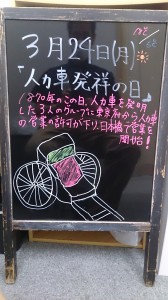 3月24日(月)
「人力車発祥の日」
1870年のこの日、人力車を発明
した3人のグループに東京府から人力車
の営業の許可が下り、日本橋で営業を
開始!